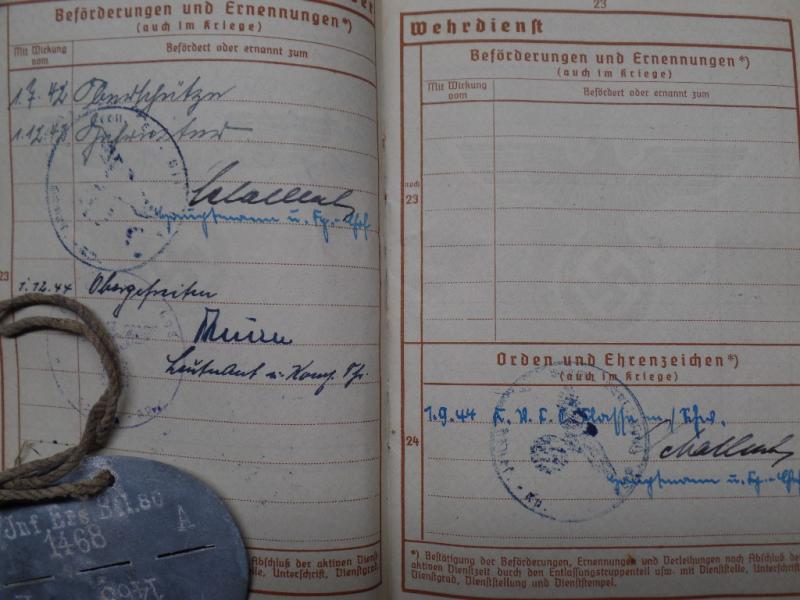 Beförderungen und Ernennungen*)
(auch im Kriege)
Mit Wirkung vom
Befördert oder ernannt zum
1.7.42 Oberschütze
1.12.42 Gefreiter
Hauptmann u. Kp.-Chef
23
1.12.44 Obergefreiten
Leutnant u. Komp.
Jnf Ers Btl. 80
1468
A
Abschluß der aktiven Dienst
elle, Unterschrift, Dienstgrad,
23
Wehrdienst
Beförderungen und Ernennungen*)
(auch im Kriege)
Mit Wirkung vom
Befördert oder ernannt zum
noch
23
Orden und Ehrenzeichen*)
(auch im Kriege)
1.9.44 K. V. K. Klasse m/Schw.
24
Hauptmann u. Kp.-Chef
*) Bestätigung der Beförderungen, Ernennungen und Verleihungen nach Abschluß der
aktiven Dienstzeit durch den Entlassungstruppenteil usw. mit Dienststelle, Unterschrift,
Dienstgrad, Dienststellung und Dienststempel.